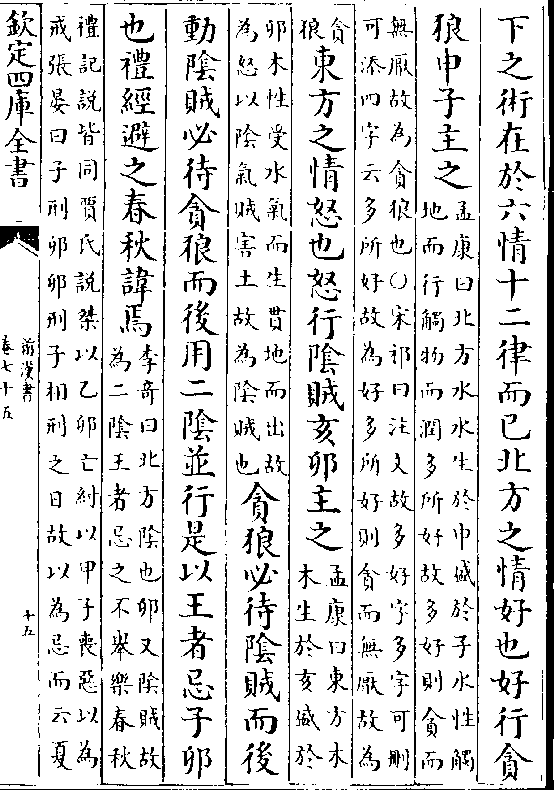 下之術在於六情十二律而已北方之情好也好行貪
狼申子主之
孟康曰北方水水生於申盛於子水性觸
地而行觸物而潤多所好故多好則貪而
無厭故為貪狼也○宋祁曰注文故多好字多字可刪
可添四字云多所好故為好多所好則貪而無厭故為
貪
狼
東方之情怒也怒行陰賊亥卯主之
孟康曰東方木
木生於亥盛於
卯木性受水氣而生貫地而出故
為怒以陰氣賊害土故為陰賊也
貪狼必待陰賊而後
動陰賊必待貪狼而後用二陰並行是以王者忌子卯
也禮經避之春秋諱焉
李奇曰北方陰也卯又陰賊故
為二陰王者忌之不舉樂春秋
禮記說皆同賈氏說桀以乙卯亡紂以甲子喪惡以為
戒張晏曰子刑卯卯刑子相刑之日故以為忌而云夏
欽定四庫全書
前漢書
卷七十五
十五